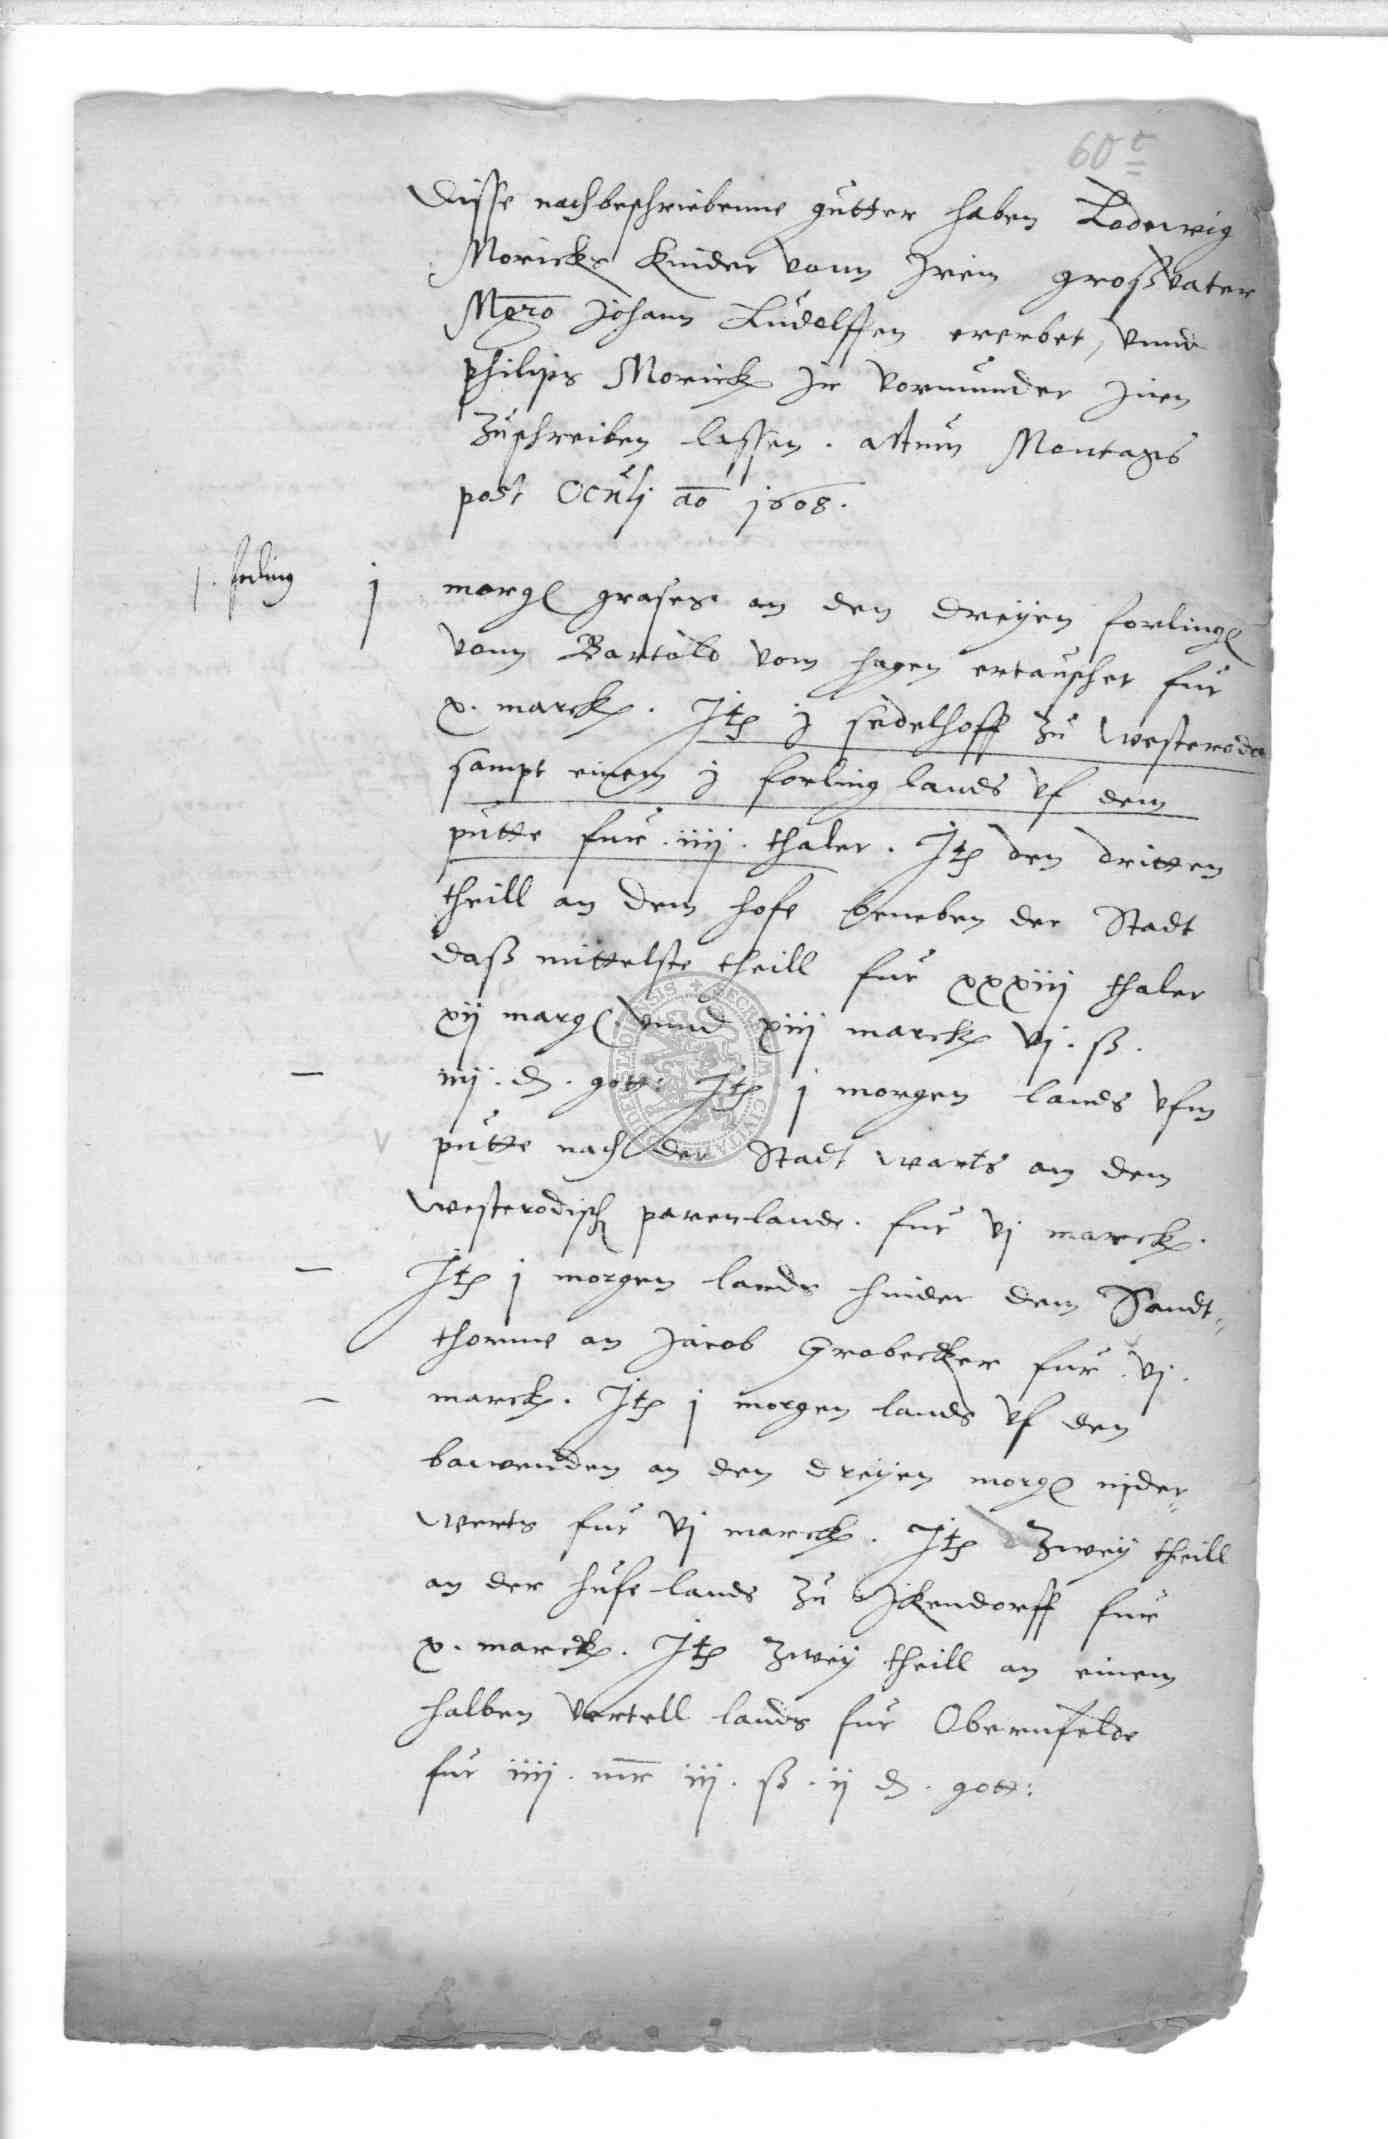 60 t
Disse nachbeschriebenne gütter haben Lodewig
Moricks Kinder vonn Irem großvater
Mgro Johann Lüdolffen ererbet, vnnd
philips Morick Ir Vormünder Inen
Züschreiben lassen. actum Montags
post Oculj ao j608.
j. forling j morg grases an den dreyen forling
vonn Bartold vom hagen ertauschet für
x. marck. It j sedelhoff zü Westerode
sampt einem j forling lands vf dem
pütte für. iiij. thaler. It den dritten
theill an dem hofe beneben der Stadt
daß mittelste theill für xxxiij thaler
xij marg vnnd xiij marck vj. ß.
iiij. d. gott: It j morgen lands vfm
pütte nach der Stadt warts an dem
westerodisch parenlande. für vj marck.
It j morgen lands hinder dem Sandt-
thorme an Jacob Grobecker für. vj.
marck. It j morgen lands vf den
bawenden an den dreyen morg nider-
werts für vj marck. It Zwey theill
an der hüfe lands Zü Ikendorff für
x. marck. It Zwey theill an einem
halben vertell lands für Obernfelde
für iiij. mr iij. ß. ij d. gott: